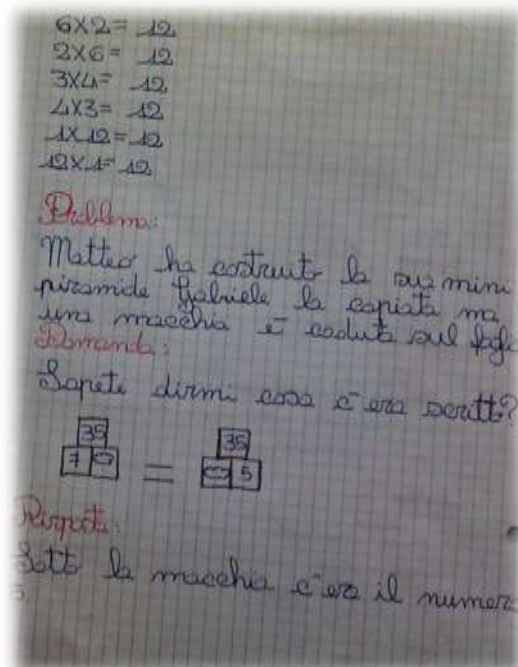 6X2= 12
2X6= 12
3X4= 12
4X3= 12
1X12=12
12X1=12
Problema:
Matteo ha costruito la sua mini
piramide Gabriele la copiata ma
una macchia è caduta sul fogl
Domanda:
Sapete dirmi cosa c'era scritto?
35 35
7 = 5
Risposta:
Sotto la macchia c'era il numero
5